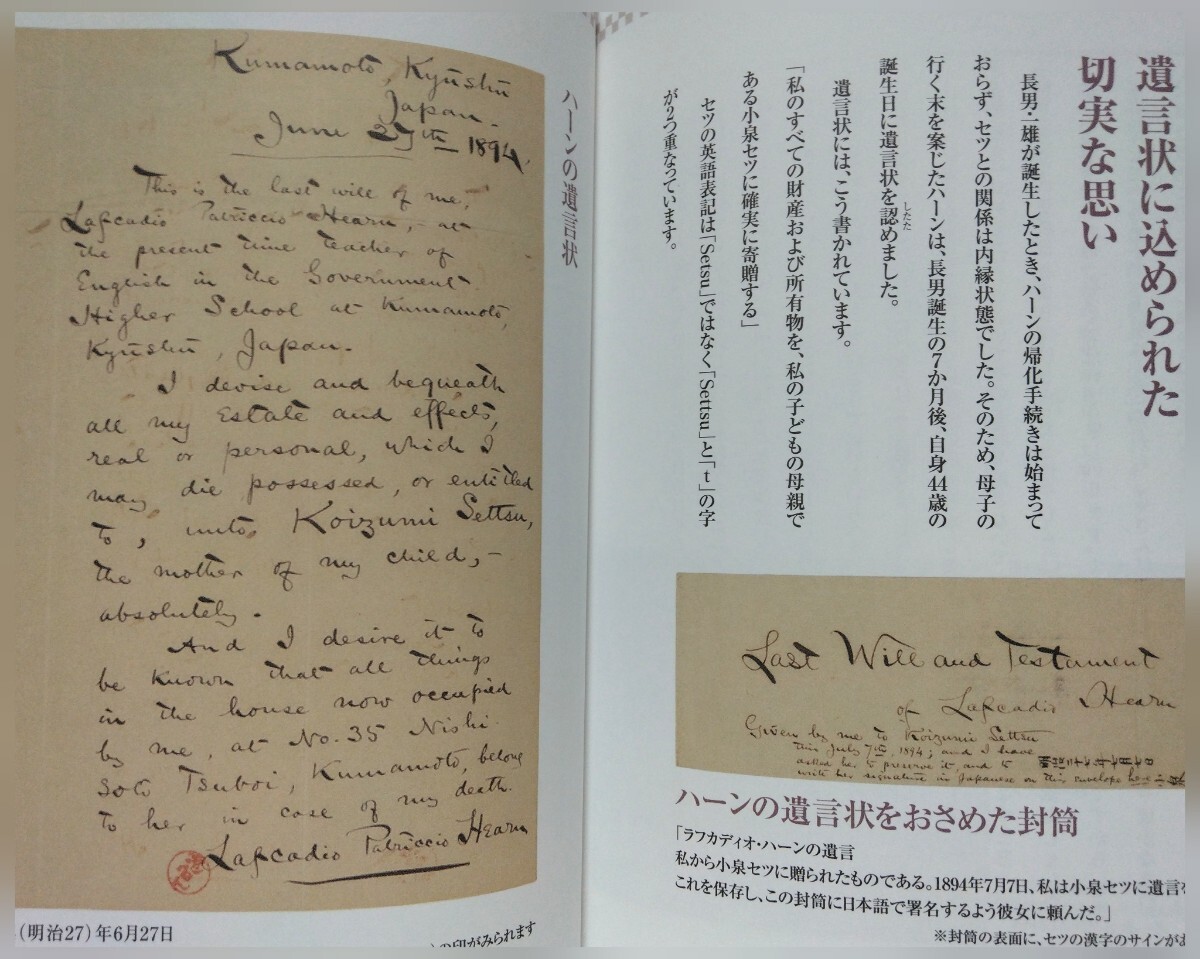 Kumamoto, Kyūshū
Japan.
June 27th 1894.
This is the last will of me,
Lafcadio Patriccio Hearn, – at
the present time teacher of
English in the Government
Higher School at Kumamoto,
Kyūshū, Japan.
I devise and bequeath
all my Estate and effects,
real or personal, which I
may die possessed, or entitled
to, unto Koizumi Settsu,
the mother of my child, –
absolutely.
And I desire it to
be known that all things
in the house now occupied
by me, at No. 35 Nishi
Soto Tsuboi, Kumamoto, belong
to her in case of my death.
Lafcadio Patriccio Hearn
ハーンの遺言状
(明治27)年6月27日
の印がみられます
遺言状に込められた
切実な思い
長男・一雄が誕生したとき、ハーンの帰化手続きは始まって
おらず、セツとの関係は内縁状態でした。そのため、母子の
行く末を案じたハーンは、長男誕生の7か月後、自身44歳の
誕生日に遺言状を認めました。
したた
遺言状には、こう書かれています。
「私のすべての財産および所有物を、私の子どもの母親で
ある小泉セツに確実に寄贈する」
セツの英語表記は「Setsu」ではなく「Settsu」と「t」の字
が2つ重なっています。
Last Will and Testament
of Lafcadio Hearn
Given by me to Koizumi Settsu
this July 7th, 1894; and I have
asked her to preserve it, and to
write her signature in Japanese on this envelope
明治二十七年七月七日
ハーンの遺言状をおさめた封筒
「ラフカディオ・ハーンの遺言
私から小泉セツに贈られたものである。1894年7月7日、私は小泉セツに遺言
これを保存し、この封筒に日本語で署名するよう彼女に頼んだ。」
※封筒の表面に、セツの漢字のサインが